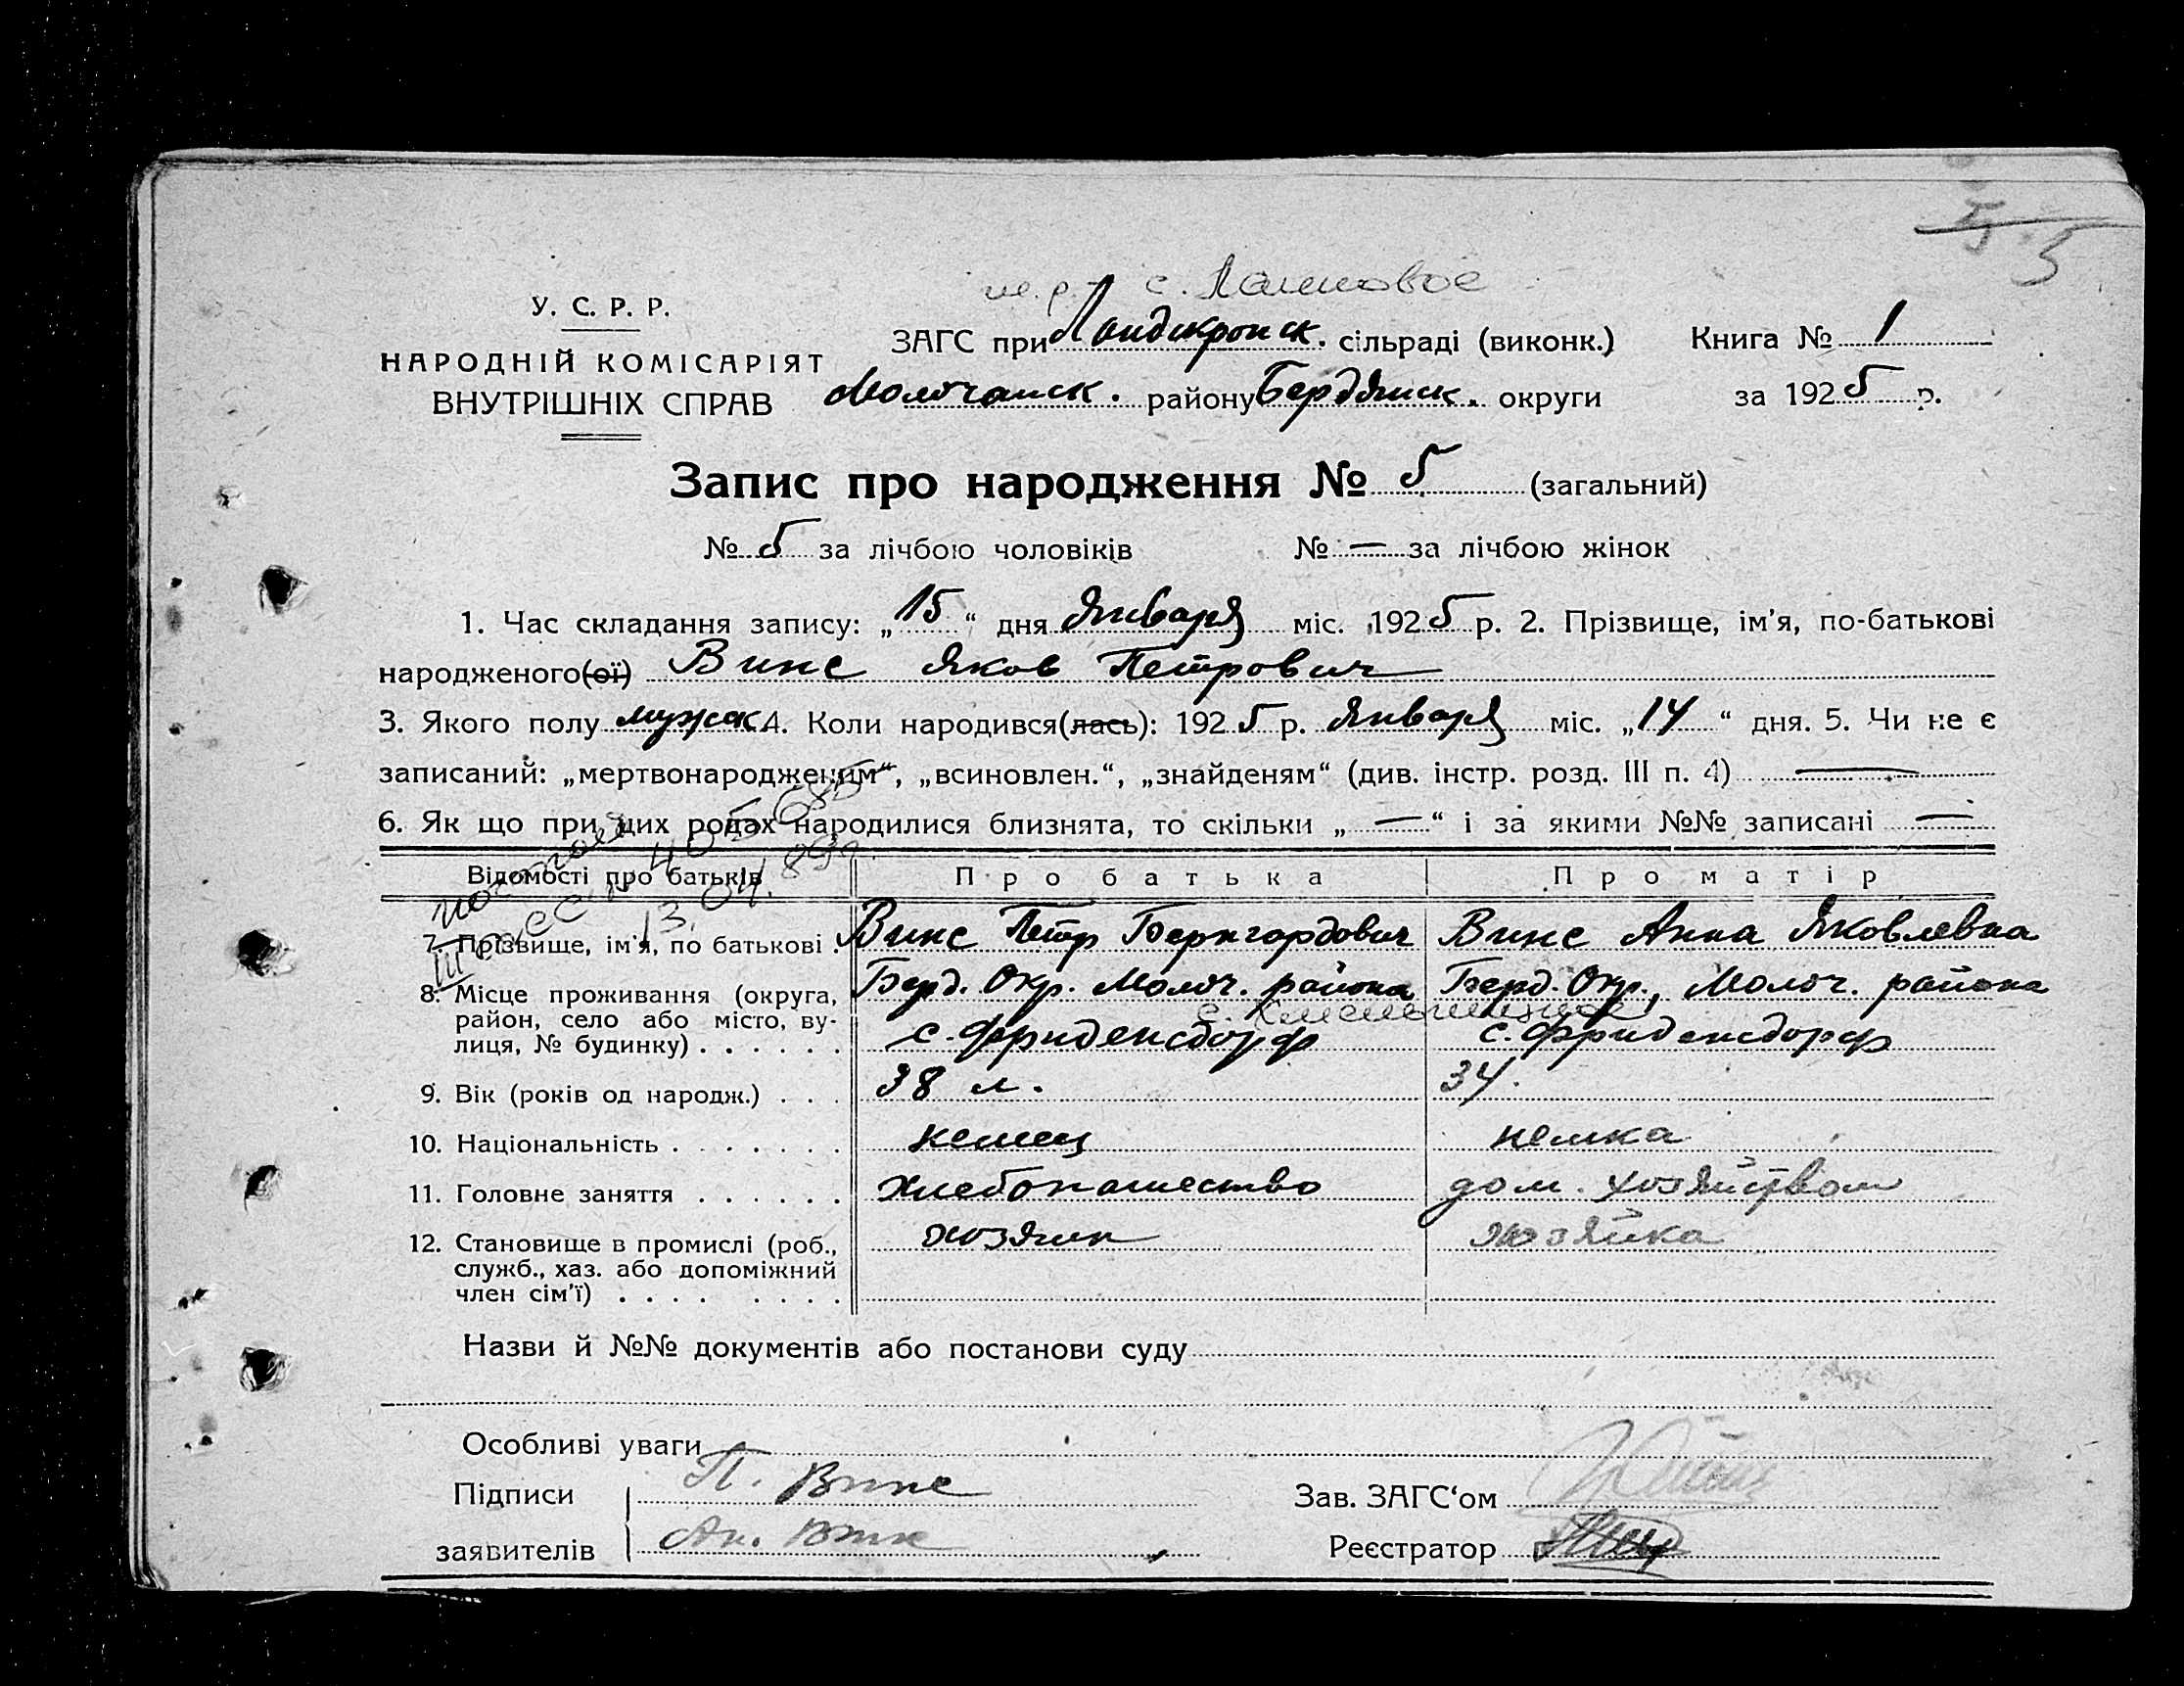 5 5
с. Ланковое
У. С. Р. Р.
НАРОДНІЙ КОМІСАРІЯТ
ВНУТРІШНІХ СПРАВ
ЗАГС при Ландскронск. сільраді (виконк.) Книга № 1
Молочанск. району Бердянск. округи за 1925 р.
Запис про народження № 5 (загальний)
№ 5 за лічбою чоловіків № — за лічбою жінок
1. Час складання запису: „15“ дня Января міс. 1925 р. 2. Прізвище, ім'я, по-батькові
народженого(ої) Винс Яков Петрович
3. Якого полу мужск 4. Коли народився(лась): 1925 р. Января міс. „14“ дня. 5. Чи не є
записаний: „мертвонародженим“, „всиновлен.“, „знайденям“ (див. інстр. розд. III п. 4) —
6. Як що при цих родах народилися близнята, то скільки „—“ і за якими №№ записані —
405685
13.04.89г.
Відомості про батьків Про батька Про матір
7. Прізвище, ім'я, по батькові . Винс Петр Бернгардович Винс Анна Яковлевна
8. Місце проживання (округа, Берд. Окр. Молоч. района Берд. Окр., Молоч. района
район, село або місто, ву-
лиця, № будинку) . . . . . . с. Фриденсдорф с. Фриденсдорф
9. Вік (років од народж.) . . . 38 л. 34.
10. Національність . . . . . . . немец немка
11. Головне заняття . . . . . . хлебопашество дом. хозяйством
12. Становище в промислі (роб., хозяин хозяйка
служб., хаз. або допоміжний
член сім'ї) . . . . . . . .
Назви й №№ документів або постанови суду
Особливі уваги
Підписи П. Винс Зав. ЗАГС‘ом
заявителів Ан. Винс Реєстратор